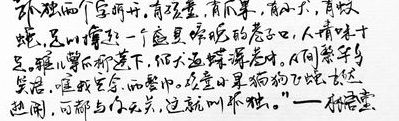 孤独两个字拆开,有孩童,有瓜果,有小犬,有蚊
蝇,足以撑起一个盛夏傍晚的巷子口,人情味十
足。稚儿擎瓜柳蓬下,细犬逐蝶深巷中。人间繁华多
笑语,唯我空余两鬓风。孩童水果猫狗飞蝇当然
热闹,可都与你无关,这就叫孤独。”——林语堂